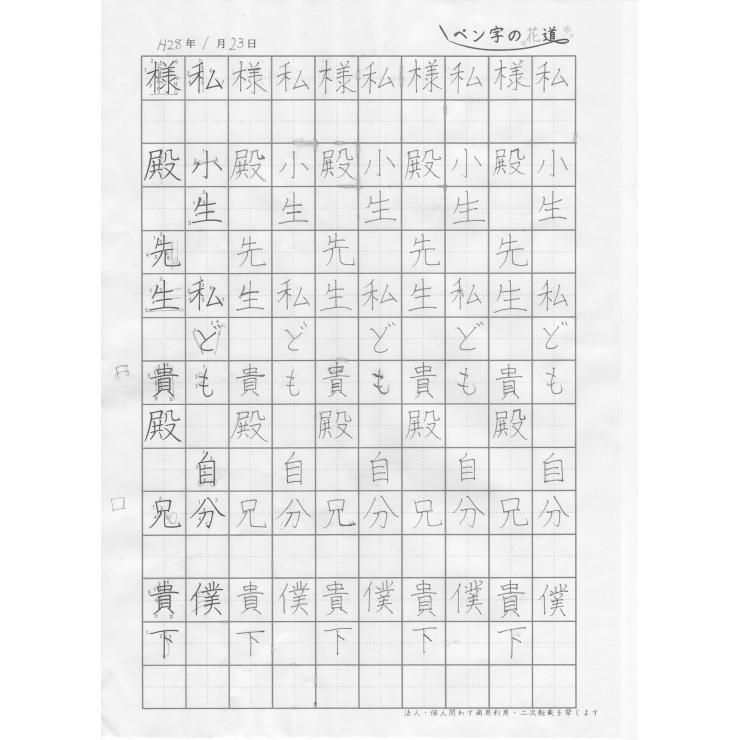 H28年1月23日
ペン字の花道
私 小生 私ども 自分 僕
様 殿 先生 貴殿 兄 貴下
私 小生 私ども 自分 僕
様 殿 先生 貴殿 兄 貴下
私 小生 私ども 自分 僕
様 殿 先生 貴殿 兄 貴下
私 小生 私ども 自分 僕
様 殿 先生 貴殿 兄 貴下
私 小生 私ども 自分 僕
様 殿 先生 貴殿 兄 貴下
法人・個人問わず商用利用・二次転載を禁じます